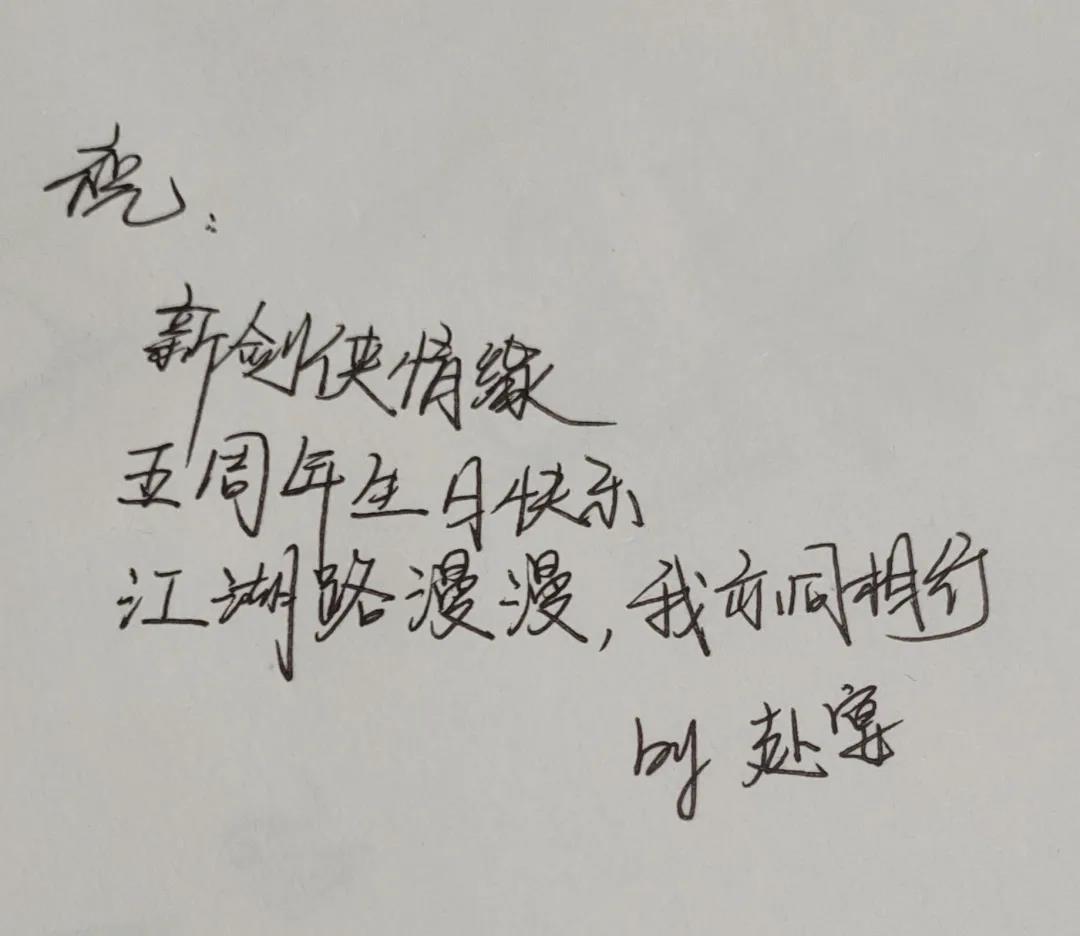 祝:
新剑侠情缘
五周年生日快乐
江湖路漫漫,我亦同相行
by 赴